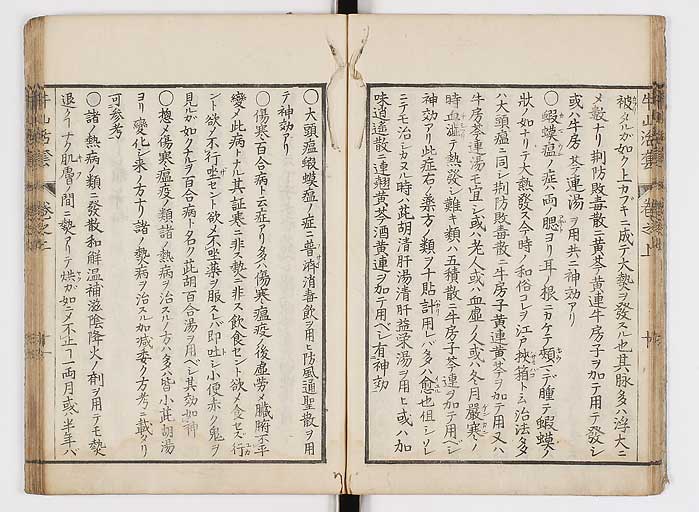 被タルガ如ク上カブキニ成テ大㔟ヲ發スル也其脉多ハ浮大ニ
メ數ナリ荆防敗毒散ニ黄芩黄連牛房子ヲ加テ用テ發シ
或ハ牛房芩連湯ヲ用共ニ神効アリ
○蝦蟆瘟ノ症ハ両ノ腮ヨリ耳ノ根ニカケテ頰マデ腫テ蝦蟆ノ
狀ノ如ナリテ大熱發ス今時ノ和俗コレヲ江戸挾箱ト云治法多
ハ大頭瘟ニ同シ荆防敗毒散ニ牛房子黄連黄芩ヲ加テ用又ハ
牛房芩連湯モ宜シ或ハ老人或ハ血虚ノ人或ハ冬月嚴寒ノ
時血澁テ熱發シ難キ類ハ五積散ニ牛房子芩連ヲ加テ用ベシ
神効アリ此症右ノ藥方ノ類ヲ十貼計用レバ多ハ愈也但シソレ
ニテモ治シカヌル時ハ柴胡清肝湯清肝益榮湯ヲ用ヒ或ハ加
味逍遙散ニ連翹黄芩酒黄連ヲ加テ用ベシ有神効
○大頭瘟蝦蟆瘟ノ症ニ普濟消毒飲ヲ用ヒ防風通聖散ヲ用
テ神効アリ
○傷寒百合病ト云症アリ多ハ傷寒瘟疫ノ後虚労メ臓腑不平
變メ此病トナル其証寒ニ非ス熱ニ非ス飲食セント欲メ食セス行
ント欲ノ不行坐セント欲メ不坐藥ヲ服スレバ即吐シ小便赤ク鬼ヲ
見ルガ如クナルヲ百合病ト名ク柴胡百合湯ヲ用ベシ其効如神
○總メ傷寒瘟疫ノ類諸ノ熱病ヲ治スルノ方ハ多ハ皆小柴胡湯
ヨリ變化シ来ノ方ナリ諸ノ熱病ヲ治スル加减委ク方考ニ載タリ
可参考
○諸ノ熱病ノ類ニ發散和解温補滋陰降火ノ剤ヲ用テモ熱
退ノイナク肌膚ノ間ニ熱アリテ烘ガ如ニメ不止ヿ一両月或ハ半年バ